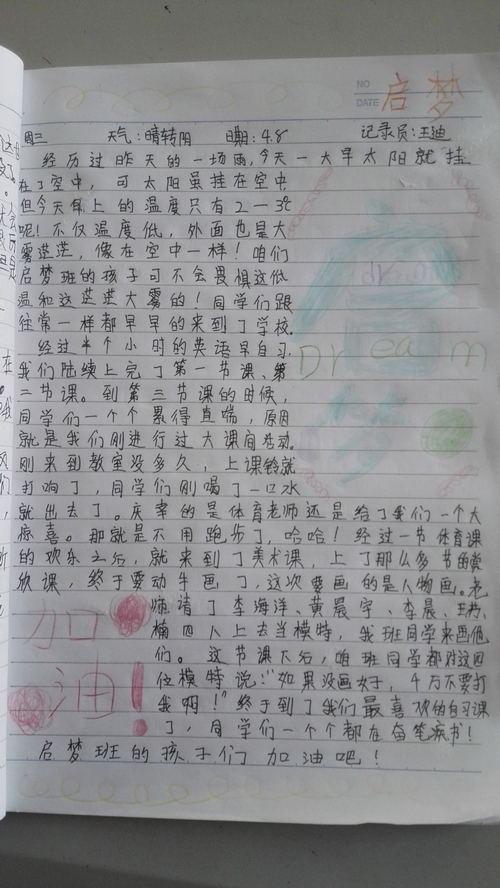 NO
DATE
启梦
周三 天气:晴转阴 日期:4.8 记录员:王迪
经历过昨天的一场雨,今天一大早太阳就挂
在了空中,可太阳虽挂在空中
但今天早上的温度只有2-3℃
呢!不仅温度低,外面也是大
雾茫茫,像在空中一样!咱们
启梦班的孩子可不会畏惧这低
温和这茫茫大雾的!同学们跟
往常一样都早早的来到了学校.
经过半个小时的英语早自习.
我们陆续上完了第一节课、第
二节课。到第三节课的时候,
同学们一个个累得直喘,原因
就是我们刚进行过大课间活动。
刚来到教室没多久,上课铃就
打响了,同学们刚喝了一口水
就出去了。庆幸的是体育老师还是给了我们一个大
惊喜。那就是不用跑步了,哈哈!经过一节体育课
的欢乐之后,就来到了美术课,上了那么多节的赏
欣课,终于要动手画了,这次要画的是人物画。老
师请了李海洋、黄晨宇、李晨、王
楠四人上去当模特,我班同学来画他
们。这节课下后,咱班同学都对这四
位模特说:“如果没画好,千万不要打
我啊!”终于到了我们最喜欢的自习课
了,同学们一个个都在奋笔疾书!
启梦班的孩子们加油吧!
Dream
加
油!